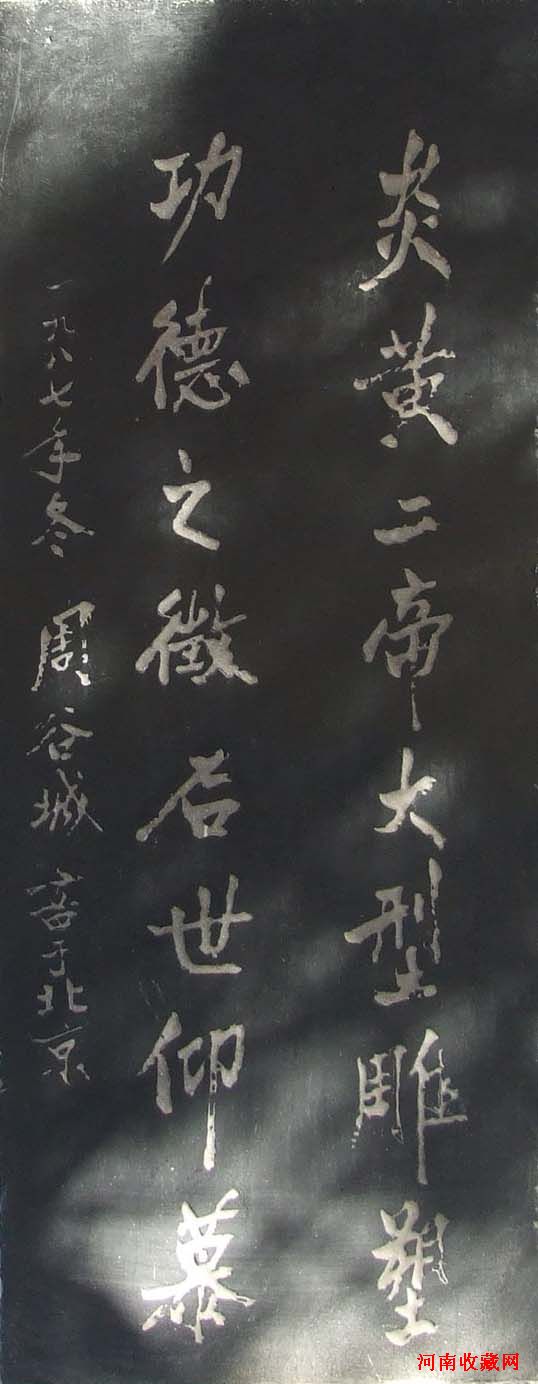 炎黄二帝大型雕塑
功德之徵后世仰慕
一九八七年冬 周谷城 書于北京
河南收藏网